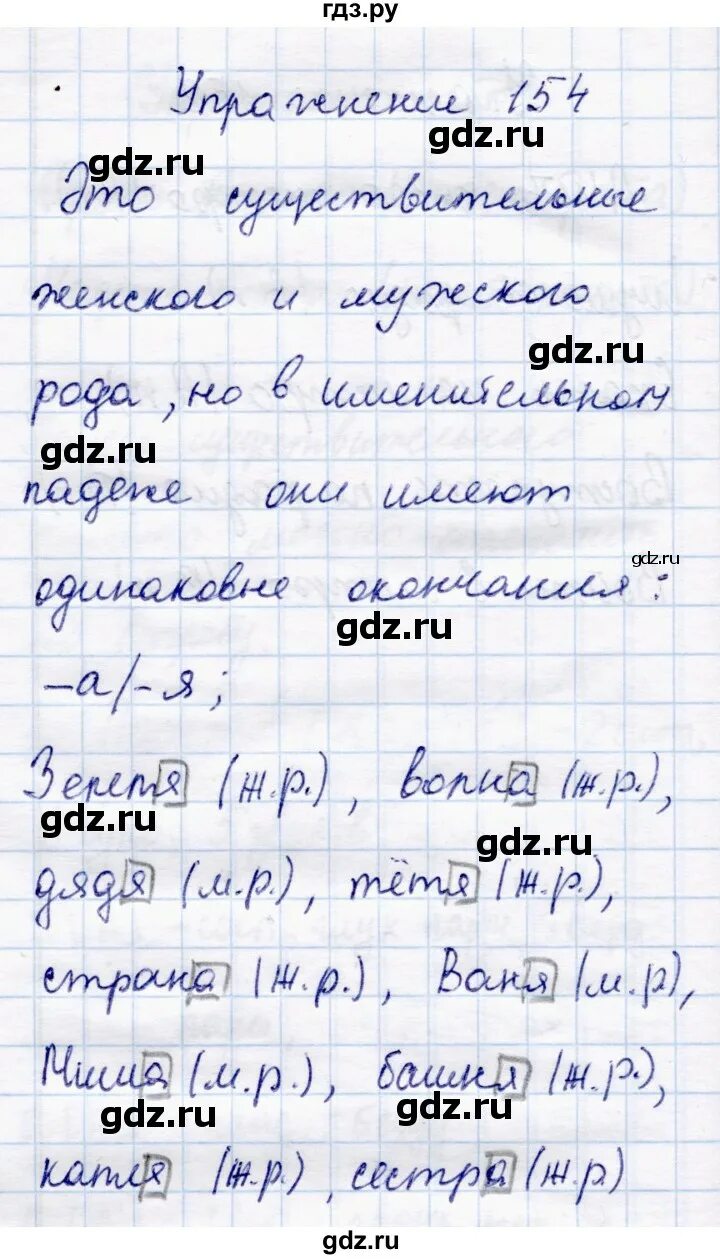 гдз.ру
Упражнение 154
gdz.ru
gdz.ru
Это существительные
женского и мужского
gdz.ru
рода, но в именительном
gdz.ru
падеже они имеют
gdz.ru
одинаковые окончания:
gdz.ru
-а/-я;
Земля (ж.р.), волна (ж.р.),
gdz.ru
gdz.ru
дядя (м.р.), тётя (ж.р.),
страна (ж.р.), Ваня (м.р),
Миша (м.р.), башня (ж.р.),
gdz.ru
gdz.ru
капля (ж.р.), сестра (ж.р)
gdz.ru